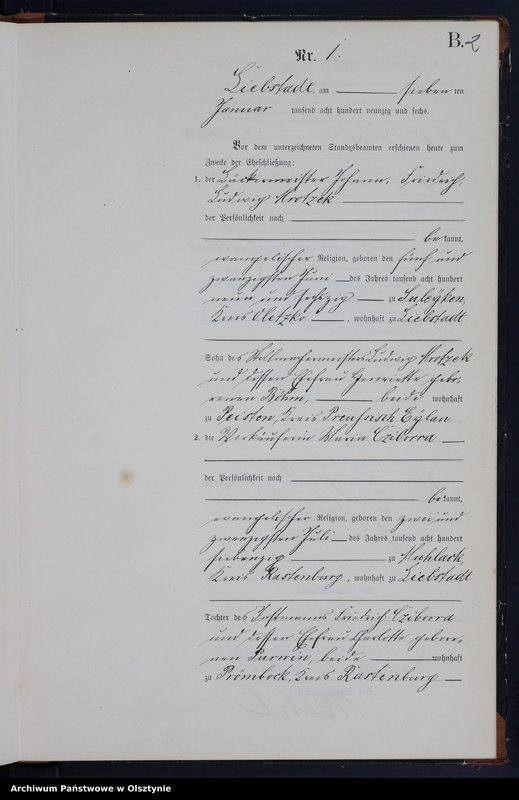 B. 2
Nr. 1.
Liebstadt, am sieben ten
Januar tausend acht hundert neunzig und sechs.
Vor dem unterzeichneten Standesbeamten erschienen heute zum
Zwecke der Eheschließung:
1. der Bäckermeister Johann, Friedrich,
Ludwig Krotzek
der Persönlichkeit nach
be kannt,
evangelischer Religion, geboren den fünf und
zwanzigsten Juni des Jahres tausend acht hundert
neun und sechszig zu Suleyken,
Kreis Oletzko, wohnhaft zu Liebstadt
Sohn des Stellmachermeisters Ludwig Krotzek
und dessen Ehefrau Henriette gebo,
renen Böhm, beide wohnhaft
zu Peisten, Kreis Preußisch Eylau
2. die Verkäuferin Maria Cziborra
der Persönlichkeit nach
be kannt,
evangelischer Religion, geboren den zwei und
zwanzigsten Juli des Jahres tausend acht hundert
siebenzig zu Muhlack,
Kreis Rastenburg, wohnhaft zu Liebstadt
Tochter des Instmanns Friedrich Cziborra
und dessen Ehefrau Charlotte gebore,
nen Parwin, beide wohnhaft
zu Prömbock, Kreis Rastenburg
Archiwum Państwowe w Olsztynie